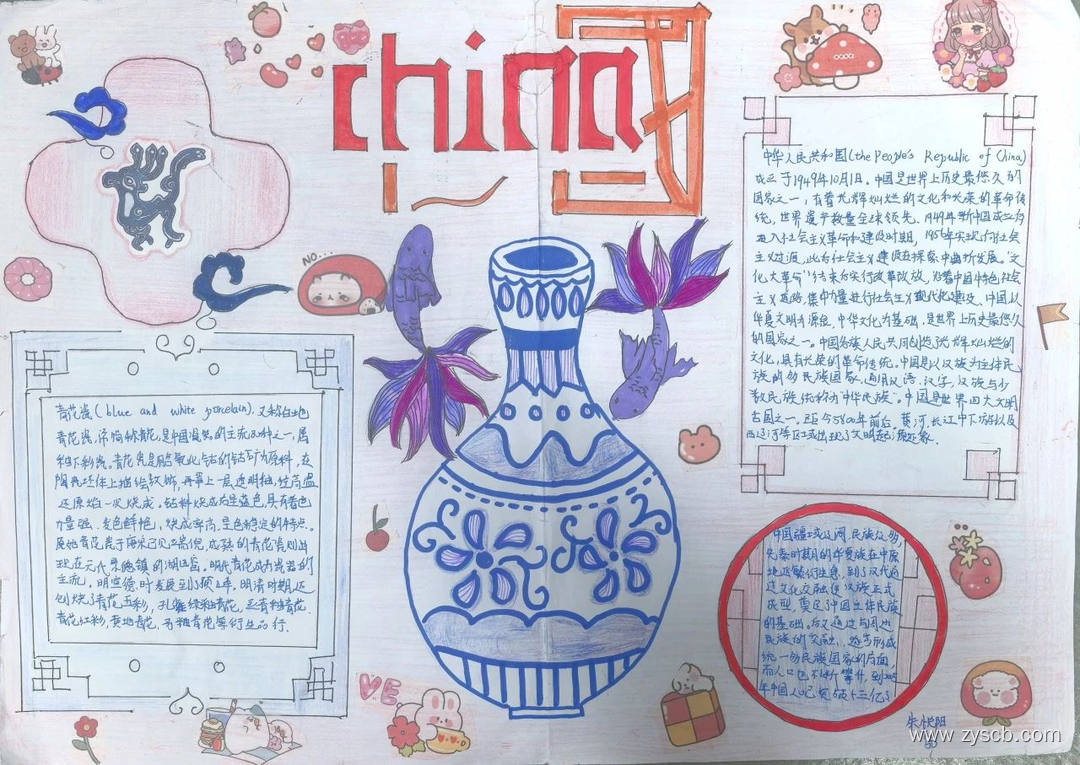 china
国
NO...
中华人民共和国(the People's Republic of China)
成立于1949年10月1日。中国是世界上历史最悠久的
国家之一，有着光辉灿烂的文化和光荣的革命传
统，世界遗产数量全球领先。1949年新中国成立后
进入社会主义革命和建设时期，1956年实现向社会
主义过渡，此后社会主义建设在探索中曲折发展。"文
化大革命"结束后实行改革开放，沿着中国特色社会
主义道路，集中力量进行社会主义现代化建设。中国以
华夏文明为源泉，中华文化为基础，是世界上历史最悠久
的国家之一。中国各族人民共同创造了光辉灿烂的
文化，具有光荣的革命传统。中国是以汉族为主体民
族的多民族国家，通用汉语、汉字，汉族与少
数民族统称为"中华民族"。中国是世界四大文明
古国之一，距今5800年前后，黄河、长江中下游以及
西辽河等区域出现了文明起源迹象。
青花瓷(blue and white porcelain)，又称白地
青花瓷，常简称青花，是中国瓷器的主流品种之一，属
釉下彩瓷。青花瓷是用含氧化钴的钴矿为原料，在
陶瓷坯体上描绘纹饰，再罩上一层透明釉，经高温
还原焰一次烧成。钴料烧成后呈蓝色，具有着色
力强、发色鲜艳、烧成率高、呈色稳定的特点。
原始青花瓷于唐宋已见端倪，成熟的青花瓷则出
现在元代景德镇的湖田窑。明代青花成为瓷器的
主流。明宣德时发展到了顶峰。明清时期，还
创烧了青花五彩、孔雀绿釉青花、豆青釉青花、
青花红彩、黄地青花、哥釉青花等衍生品种。
中国疆域辽阔、民族众多，
先秦时期的华夏族在中原
地区繁衍生息，到了汉代通
过文化交融使汉族正式
成型，奠定了中国主体民族
的基础。后又通过与周边
民族的交融，逐步形成
统一多民族国家的局面，
而人口也不断攀升，到
年中国人口突破十三亿
VE
www.zyscb.com